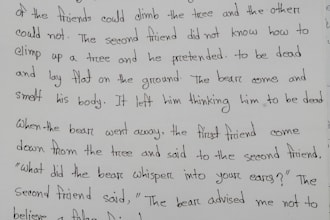 of the friends could climb the tree and the other
could not. The second friend did not know how to
climp up a tree and he pretended to be dead
and lay flat on the ground. The bear come and
smelt his body. It left him thinking him to be dead
When the bear went away, the first friend come
down from the tree and said to the second friend,
"What did the bear whisper into your ears?" The
second friend said, "The bear advised me not to
believe a false friend